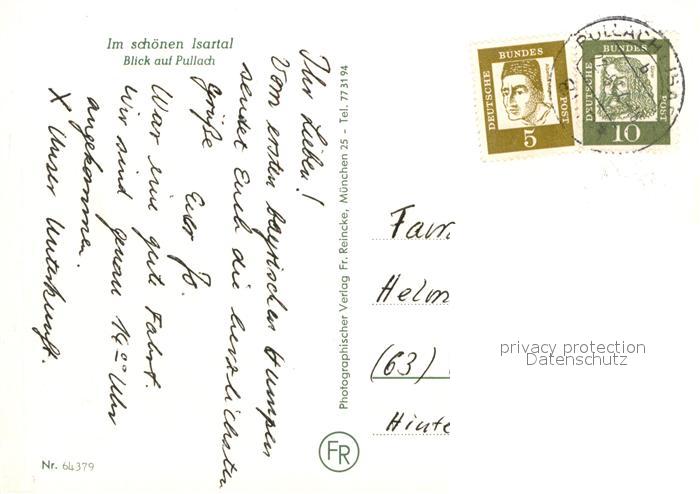 Im schönen Isartal
Blick auf Pullach
Ihr Lieben!
Vom ersten bayrischen Humpen
sendet Euch die herzlichsten
Grüße Euer Jo.
War eine gute Fahrt.
Wir sind genau 14°° Uhr
angekommen.
X Unser Unterkunft.
Nr. 64379
Photographischer Verlag Fr. Reincke, München 25 - Tel. 773194
FR
DEUTSCHE
BUNDES
POST
5
DEUTSCHE
BUNDES
POST
10
PULLACH
Fam.
Helm
(63)
Hinte
privacy protection
Datenschutz